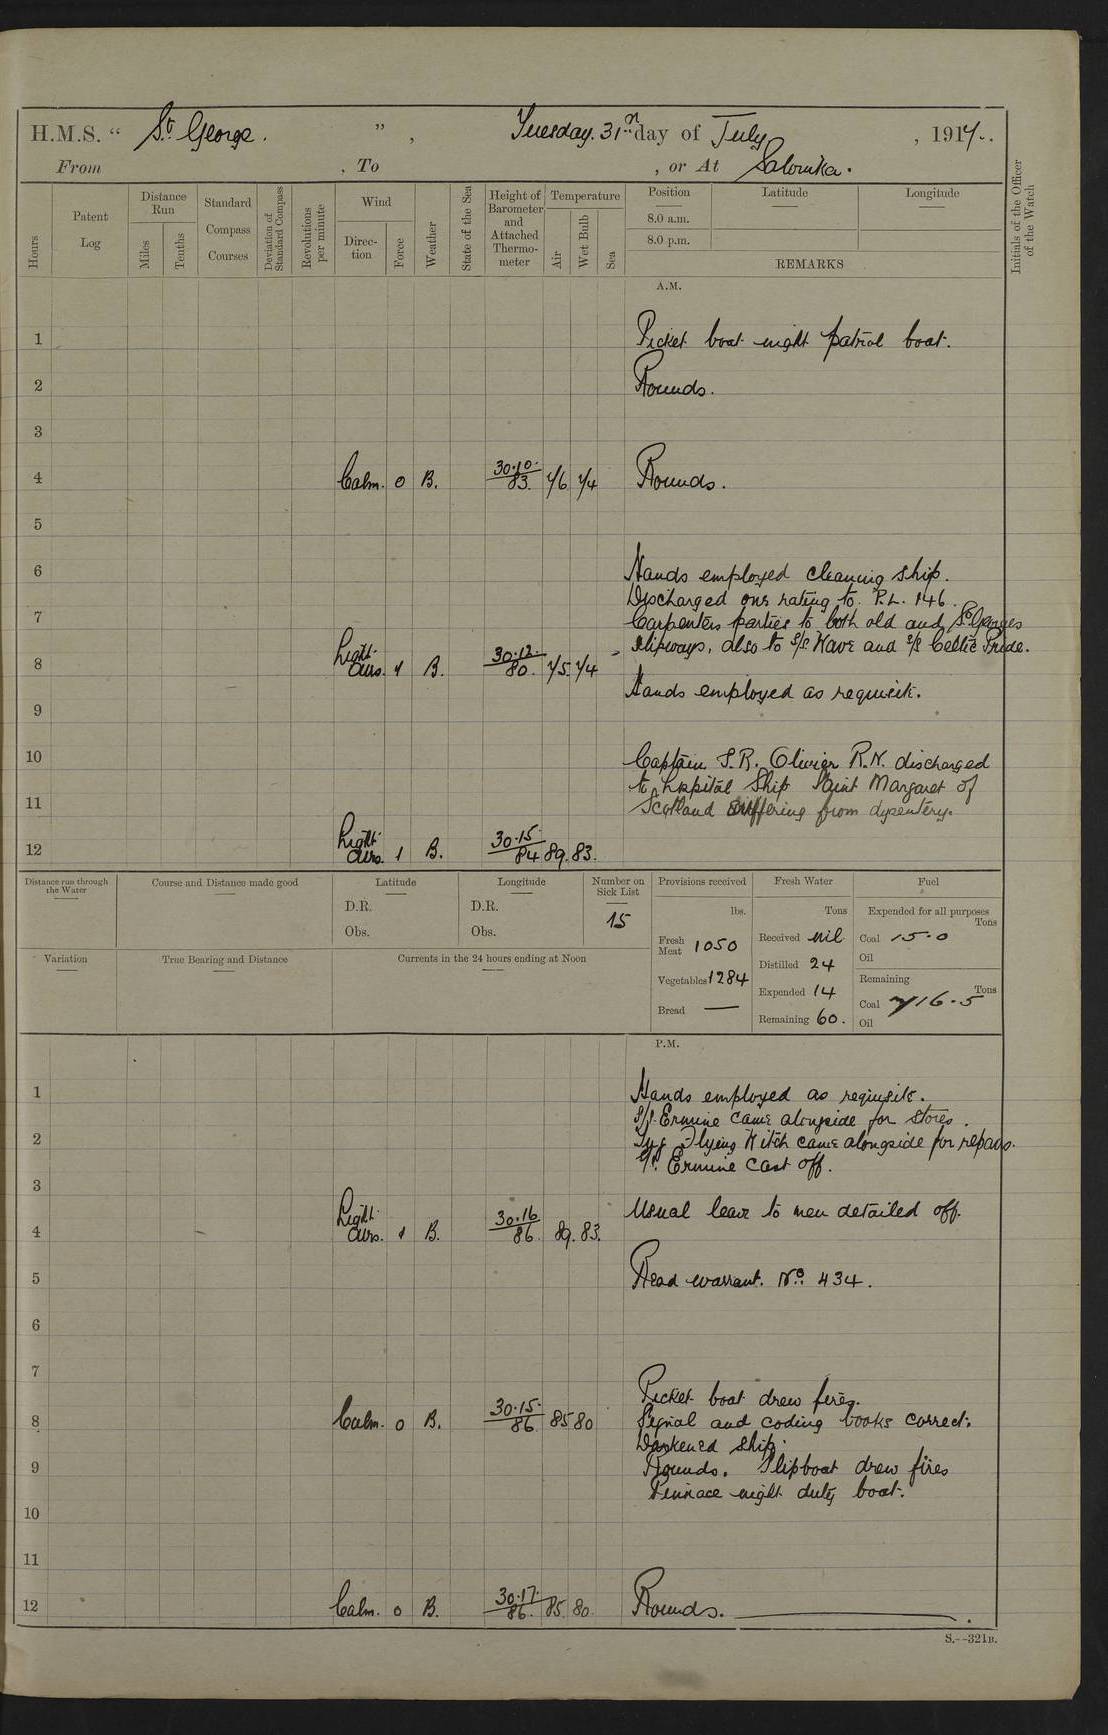 H.M.S. "St. George. ", Tuesday. 31st day of July, 1917.
From , To , or At Salonika.
Hours
Patent Log
Distance Run
Miles
Tenths
Standard Compass Courses
Deviation of Standard Compass
Revolutions per minute
Wind
Direction
Force
Weather
State of the Sea
Height of Barometer and Attached Thermometer
Temperature
Air
Wet Bulb
Sea
Position
8.0 a.m.
8.0 p.m.
Latitude
Longitude
REMARKS
Initials of the Officer of the Watch
A.M.
1 Picket boat night patrol boat.
2 Rounds.
3
4 Calm. 0 B. 30.10/83. 76 74 Rounds.
5
6 Hands employed cleaning ship.
Discharged one rating to P.L. 146.
7 Carpenters parties to both old and St Georges
8 Light airs. 1 B. 30.12/80. 75. 74 slipways, also to S/S Wave and S/S Celtic Pride.
Hands employed as requisite.
9
10 Captain S.R. Olivier R.N. discharged
to hospital Ship Saint Margaret of
11 Scotland suffering from dysentery.
12 Light airs. 1 B. 30.15/84 89. 83.
Distance run through the Water
Course and Distance made good
Latitude
D.R.
Obs.
Longitude
D.R.
Obs.
Number on Sick List
15
Provisions received
lbs.
Fresh Meat 1050
Vegetables 1284
Bread —
Fresh Water
Tons
Received nil
Distilled 24
Expended 14
Remaining 60.
Fuel
Expended for all purposes
Tons
Coal 15.0
Oil
Remaining
Tons
Coal 716.5
Oil
Variation
True Bearing and Distance
Currents in the 24 hours ending at Noon
P.M.
1 Hands employed as requisite.
S/S Ermine came alongside for stores.
2 Tug Flying Kitch came alongside for repairs.
Ermine cast off.
3
Usual leave to men detailed off.
4 Light airs. 1 B. 30.16/86. 89. 83.
5 Read warrant. No. 434.
6
7
Picket boat drew fires.
8 Calm. 0 B. 30.15./86. 85 80 Signal and coding books correct.
Darkened ship.
9 Rounds. Slipboat drew fires
Pinnace night duty boat.
10
11
12 Calm. 0 B. 30.17./86. 85 80. Rounds.
S.--321B.